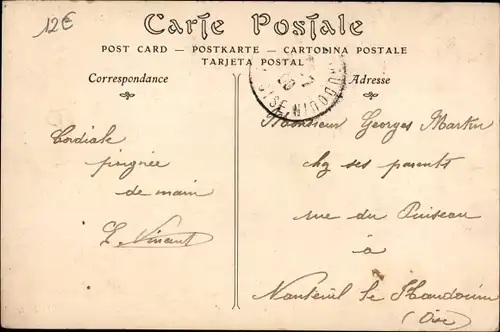 12€
Carte Postale
POST CARD — POSTKARTE — CARTOLINA POSTALE
TARJETA POSTAL
Correspondance
Cordiale
poignée
de main
L. Vincent
Adresse
OISE
Monsieur Georges Martin
chez ses parents
rue du Puiseau
à
Nanteuil le Haudouin
(Oise)